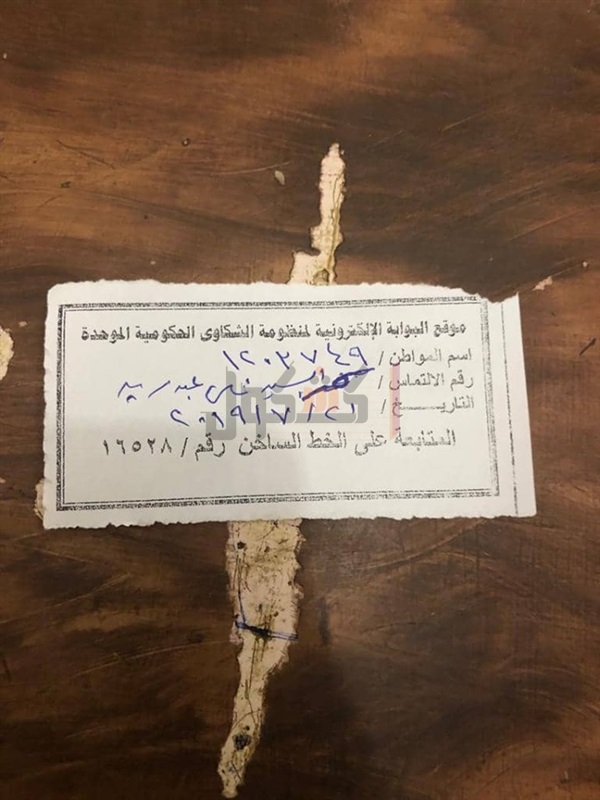 موقع البوابة الإلكترونية لمنظومة الشكاوى الحكومية الموحدة
اسم المواطن / ١٢٠٣٧٤٩
رقم الالتماس / السيد
التاريـــخ / ٢٠١٩/٧/٢١
المتابعة على الخط الساخن رقم / ١٦٥٢٨